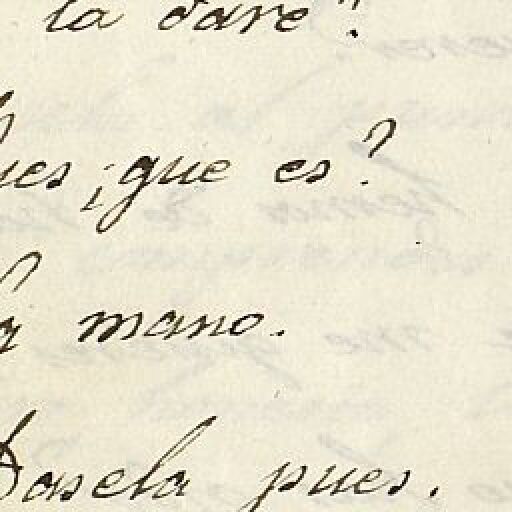 la dare".
ues ¡que es?
a mano.
Dasela pues.